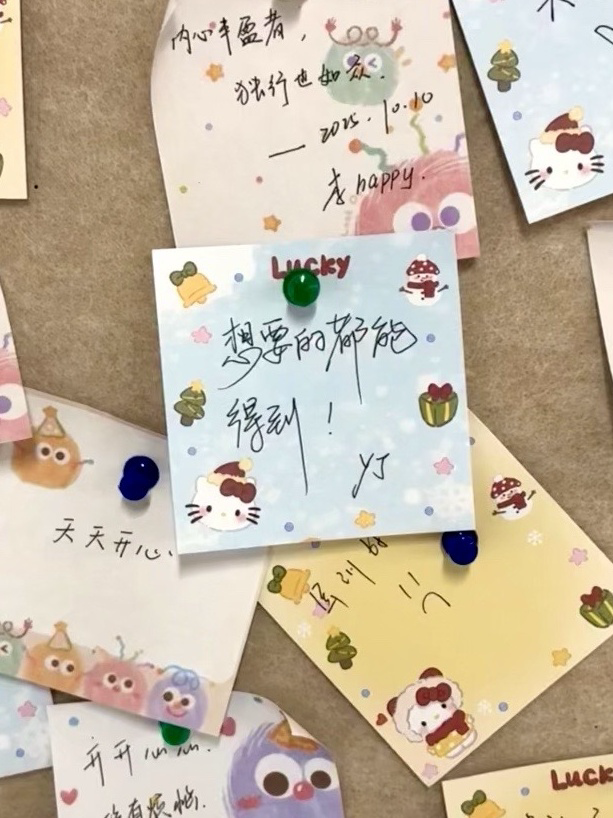 内心丰盈者,
独行也如众.
— 2025.10.10
李happy.
Lucky
想要的都能
得到!
YJ
天天开心.
开开心心.
没有烦恼.
Luck